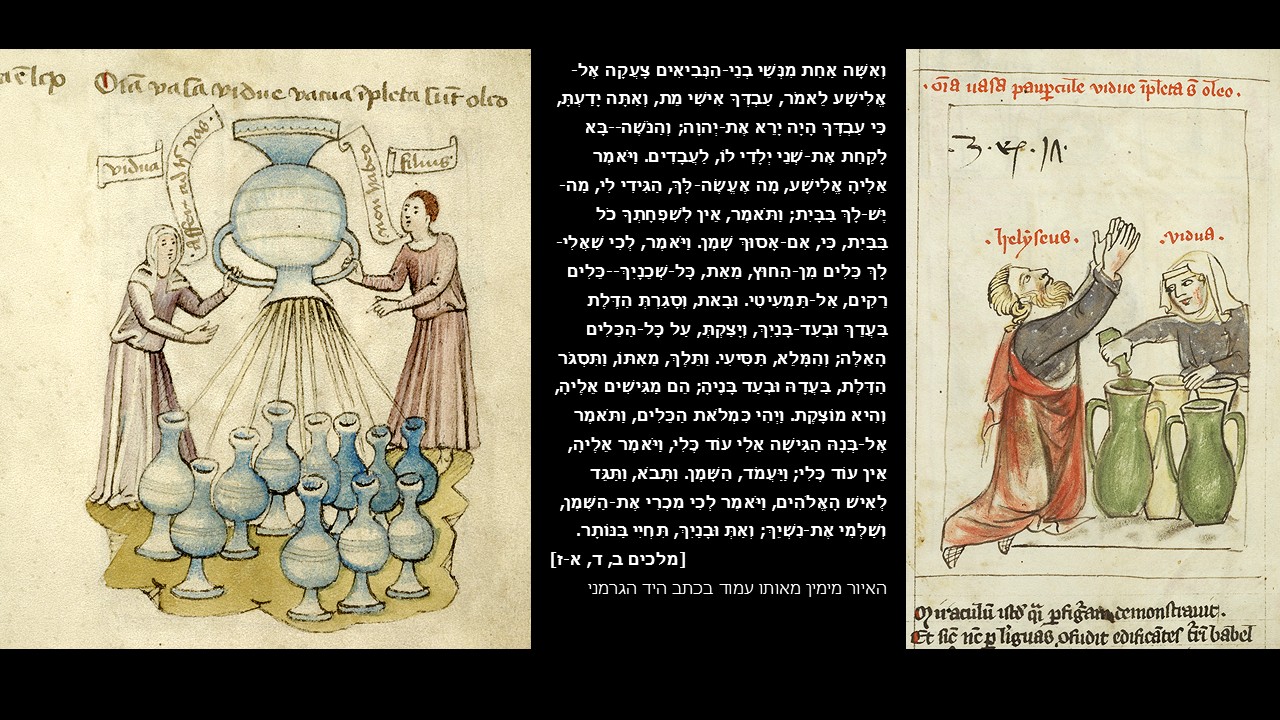 Oīa vasa vidue vacua īpleta sūt oleo
vidua
filius
וְאִשָּׁה אַחַת מִנְּשֵׁי בְנֵי-הַנְּבִיאִים צָעֲקָה אֶל-
אֱלִישָׁע לֵאמֹר, עַבְדְּךָ אִישִׁי מֵת, וְאַתָּה יָדַעְתָּ,
כִּי עַבְדְּךָ הָיָה יָרֵא אֶת-יְהוָה; וְהַנֹּשֶׁה--בָּא
לָקַחַת אֶת-שְׁנֵי יְלָדַי לוֹ, לַעֲבָדִים. וַיֹּאמֶר
אֵלֶיהָ אֱלִישָׁע, מָה אֶעֱשֶׂה-לָּךְ, הַגִּידִי לִי, מַה-
יֶּשׁ-לָךְ בַּבָּיִת; וַתֹּאמֶר, אֵין לְשִׁפְחָתְךָ כֹל
בַּבַּיִת, כִּי, אִם-אָסוּךְ שָׁמֶן. וַיֹּאמֶר, לְכִי שַׁאֲלִי-
לָךְ כֵּלִים מִן-הַחוּץ, מֵאֵת, כָּל-שְׁכֵנָיִךְ--כֵּלִים
רֵקִים, אַל-תַּמְעִיטִי. וּבָאת, וְסָגַרְתְּ הַדֶּלֶת
בַּעֲדֵךְ וּבְעַד-בָּנַיִךְ, וְיָצַקְתְּ, עַל כָּל-הַכֵּלִים
הָאֵלֶּה; וְהַמָּלֵא, תַּסִּיעִי. וַתֵּלֶךְ, מֵאִתּוֹ, וַתִּסְגֹּר
הַדֶּלֶת, בַּעֲדָהּ וּבְעַד בָּנֶיהָ; הֵם מַגִּישִׁים אֵלֶיהָ,
וְהִיא מוֹצָקֶת. וַיְהִי כִּמְלֹאת הַכֵּלִים, וַתֹּאמֶר
אֶל-בְּנָהּ הַגִּישָׁה אֵלַי עוֹד כֶּלִי, וַיֹּאמֶר אֵלֶיהָ,
אֵין עוֹד כֶּלִי; וַיַּעֲמֹד, הַשָּׁמֶן. וַתָּבֹא, וַתַּגֵּד
לְאִישׁ הָאֱלֹהִים, וַיֹּאמֶר לְכִי מִכְרִי אֶת-הַשֶּׁמֶן,
וְשַׁלְּמִי אֶת-נִשְׁיֵךְ; וְאַתְּ וּבָנַיִךְ, תִּחְיִי בַּנּוֹתָר.
[מלכים ב, ד, א-ז]
האיור מימין מאותו עמוד בכתב היד הגרמני
·Oīa uasa paup̄cule vidue īpleta s̄ oleo·
·helyseus·
·vidua·